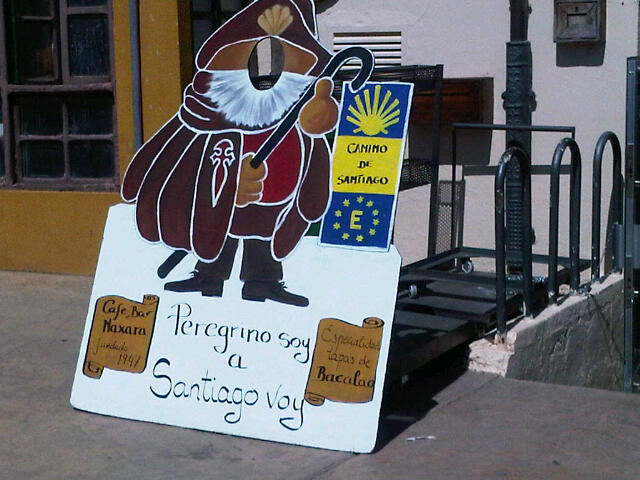 CAMINO
DE
SANTIAGO
E
Peregrino soy
a
Santiago voy
Cafe, Bar
Naxara
fundado
1947
Especialidad
tapas de
Bacalao